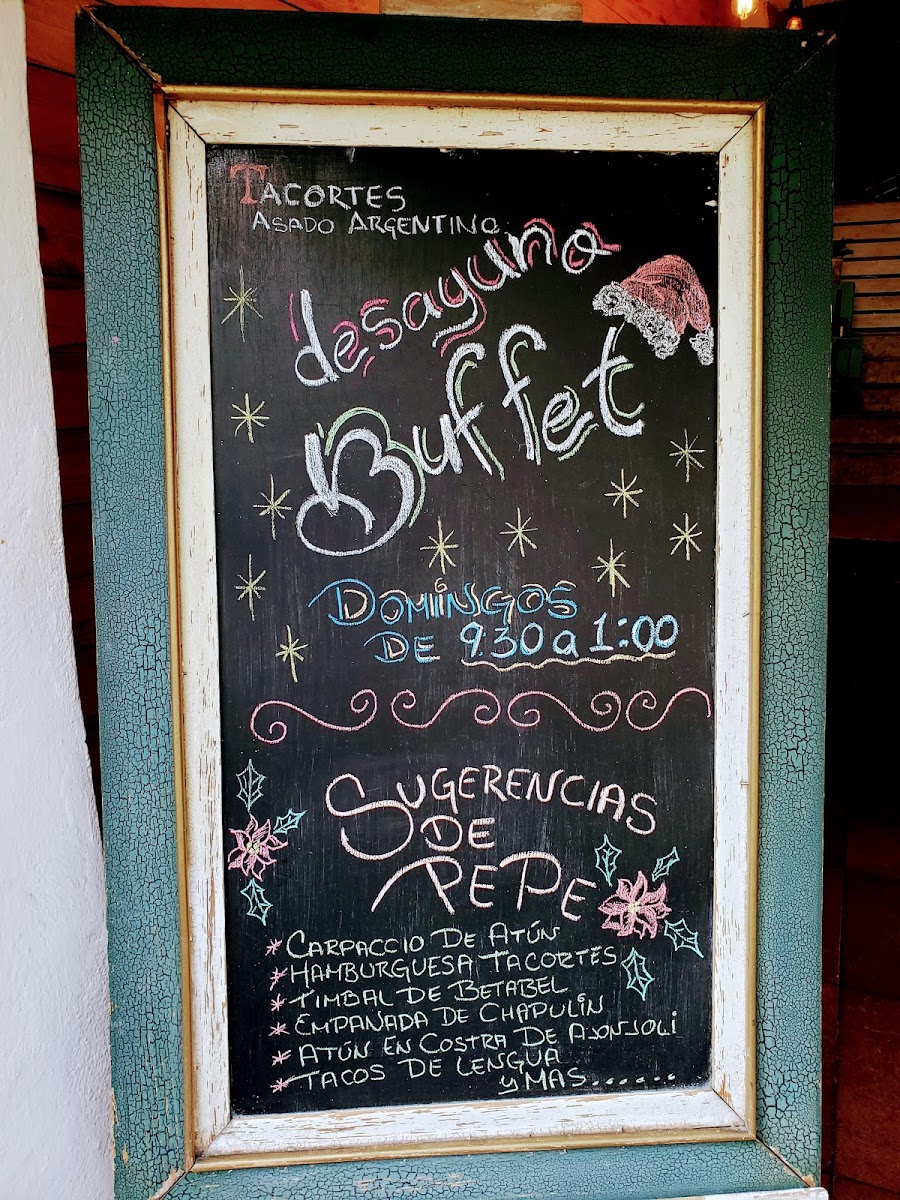 TACORTES
ASADO ARGENTINO
desayuno
Buffet
DOMINGOS
DE 9:30 a 1:00
SUGERENCIAS
DE
PEPE
* CARPACCIO DE ATÚN
* HAMBURGUESA TACORTES
* TIMBAL DE BETABEL
* EMPANADA DE CHAPULÍN
* ATÚN EN COSTRA DE AJONJOLI
* TACOS DE LENGUA
y MAS......